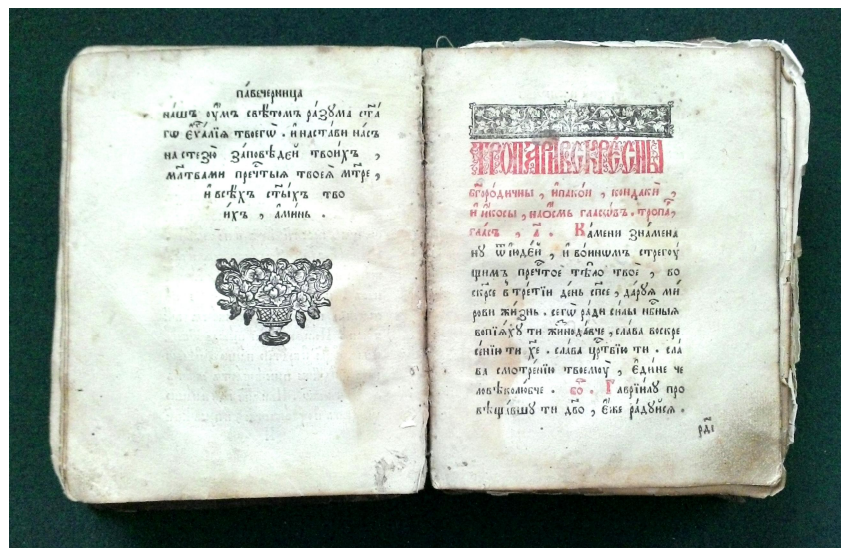 па́вечерница
на́шъ ᲂу҆́мъ свѣ́томъ ра́зума ст҃а́
гѡ є҆ѵⷢ҇лїѧ твоегѡ̀ . и҆ наста́ви на́съ
на стезю̀ за́повѣдей твои́хъ ,
мл҃твами пречⷭ҇тыѧ твоеѧ̀ мт҃ре ,
и҆ всѣ́хъ ст҃ы́хъ тво
и́хъ , а҆ми́нь .
тропари̑ воскре́сны
бг҃оро́дичны , и҆пакои̑ , кондаки̑ ,
и҆ и҆́косы , на о҆́смь гласѡ́въ . тропа́ ,
гла́съ , а҃ . Ка́мени зна́мена
ну ѿ і҆ꙋде́й , и҆ во́инѡмъ стрегоу́
щимъ пречⷭ҇тое тѣ́ло твоѐ , во
скр҃се в̾ тре́тїи де́нь сп҃се , да́руѧ ми́
рови жи́знь . сегѡ̀ ра́ди си́лы нбⷭ҇ныѧ
вопїѧ́хꙋ ти жи҆знода́вче , сла́ва воскре
се́нїю ти хⷭ҇е . сла́ва црⷭ҇твїю ти . сла́
ва смотре́нїю твоемоу̀ , є҆ди́не че
ловѣколю́бче . бо҃ . Гаврїи́лꙋ про
вѣща́вшꙋ ти дв҃о , є҆́же ра́дꙋйсѧ .
рд҃і